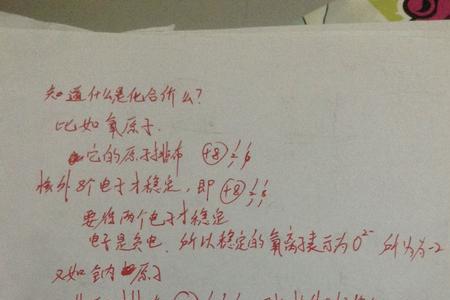 知道什么是化合价么?
比如氧原子.
它的原子排布 +8 2 6
核外8个电子才稳定,即 +8 2 8
要得两个电子才稳定
电子是负电.所以稳定的氧离子表示为O²⁻ 所以为-2
又如钠原子